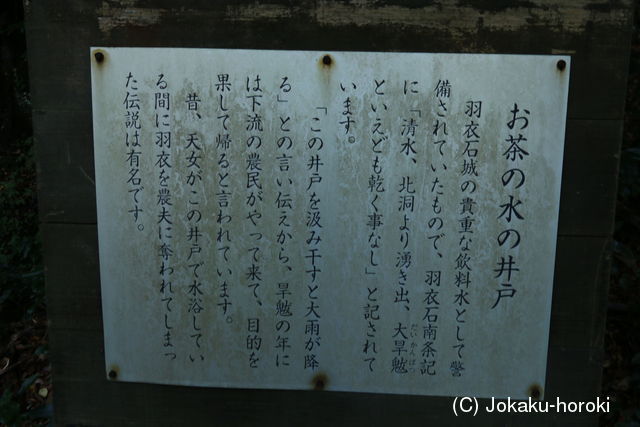 お茶の水の井戸
羽衣石城の貴重な飲料水として警
備されていたもので、羽衣石南条記
に「清水、北洞より湧き出、大旱魃
だいかんばつ
といえども乾く事なし」と記されて
います。
「この井戸を汲み干すと大雨が降
る」との言い伝えから、旱魃の年に
は下流の農民がやって来て、目的を
果して帰ると言われています。
昔、天女がこの井戸で水浴してい
る間に羽衣を農夫に奪われてしまっ
た伝説は有名です。
(C) Jokaku-horoki